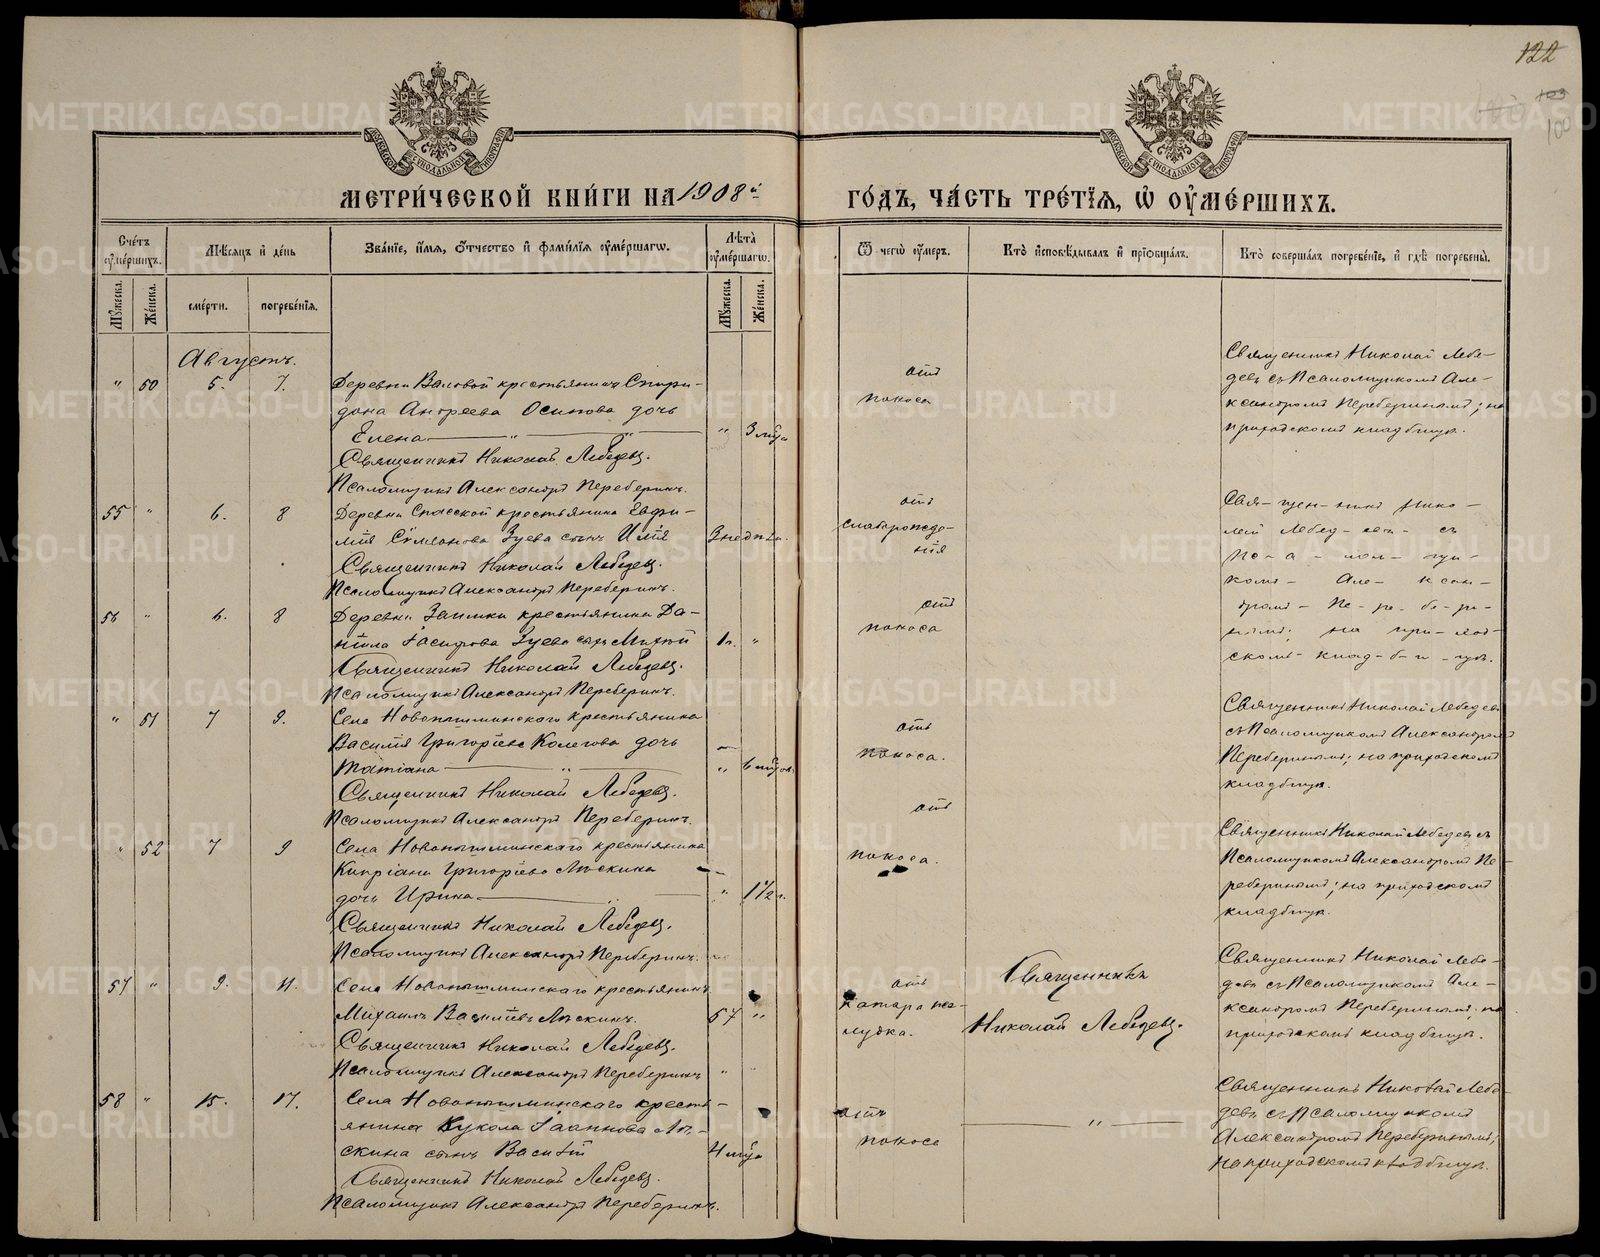 122
103
100
МЕТРИ́ЧЕСКОЙ КНИ́ГИ НА 1908й
ГО́ДЪ, ЧА́СТЬ ТРЕ́ТЇѦ, Ѡ҆ ОУ҆МЕ́РШИХЪ.
Сче́тъ оу҆ме́ршихъ.
Мѣ́сѧцъ и҆ де́нь
Зва́нїе, и҆́мѧ, ѻ҆́тчество и҆ фами́лїѧ оу҆ме́ршагѡ.
Лѣ́та оу҆ме́ршагѡ.
Ѿ чегѡ̀ оу҆́меръ.
Кто̀ и҆сповѣ́дывалъ и҆ прїѡбща́лъ.
Кто̀ соверша́лъ погребе́нїе, и҆ гдѣ̀ погребены̀.
Мꙋ́жеска.
Же́нска.
сме́рти.
погребе́нїѧ.
Мꙋ́жеска.
Же́нска.
Августъ.
" 50 5. 7.
Деревни Валовой крестьянина Спири-
дона Андреева Осипова дочь
Елена
" 3 мѣс.
Священникъ Николай Лебедевъ.
Псаломщикъ Александръ Переберинъ.
отъ
поноса
Священникъ Николай Лебе-
девъ съ Псаломщикомъ Але-
ксандромъ Переберинымъ; на
приходскомъ кладбищѣ.
55 " 6. 8
Деревни Спасской крестьянина Евфи-
мія Зуева сынъ Илія
Священникъ Николай Лебедевъ.
Псаломщикъ Александръ Переберинъ.
отъ
слаборожде-
нія
Свя-щен-никъ Нико-
лай Лебед-евъ- съ
Пс-а-лом-щи-
комъ- Але-ксан-
дромъ- Пе-ре-бе-ри-
нымъ; на при-ход-
скомъ- клад-б-и-щѣ.
56 " 6. 8
Деревни Заимки крестьянина Да-
ніила Зуева сынъ
1 г. "
Священникъ Николай Лебедевъ.
Псаломщикъ Александръ Переберинъ.
отъ
поноса
" 51 7 9.
Села Новопышминскаго крестьянина
Василія Григоріева Колегова дочь
Татіана
" 6 мѣс.
Священникъ Николай Лебедевъ.
Псаломщикъ Александръ Переберинъ.
отъ
поноса.
Священникъ Николай Лебедевъ
съ Псаломщикомъ Александромъ
Переберинымъ; на приходскомъ
кладбищѣ.
" 52 7 9
Села Новопышминскаго крестьянина
Кипріана Григоріева Лѣскина
дочь Ирина
" 1 1/2 г.
Священникъ Николай Лебедевъ.
Псаломщикъ Александръ Переберинъ.
отъ
поноса.
Священникъ Николай Лебедевъ съ
Псаломщикомъ Александромъ Пе-
реберинымъ; на приходскомъ
кладбищѣ.
57 " 9. 11.
Села Новопышминскаго крестьянинъ
Михаилъ Васильевъ Лѣскинъ.
57 "
Священникъ Николай Лебедевъ.
Псаломщикъ Александръ Переберинъ
отъ
катара же-
лудка.
Священникъ
Николай Лебедевъ.
Священникъ Николай Лебе-
девъ съ Псаломщикомъ Але-
ксандромъ Переберинымъ; на
приходскомъ кладбищѣ.
58 " 15. 17.
Села Новопышминскаго кресть-
янина Іоаннова Лѣ-
скина сынъ Василій
4 мѣс.
Священникъ Николай Лебедевъ.
Псаломщикъ Александръ Переберинъ.
отъ
поноса
"
Священникъ Николай Лебе-
девъ съ Псаломщикомъ
Александромъ Переберинымъ;
на приходскомъ кладбищѣ.